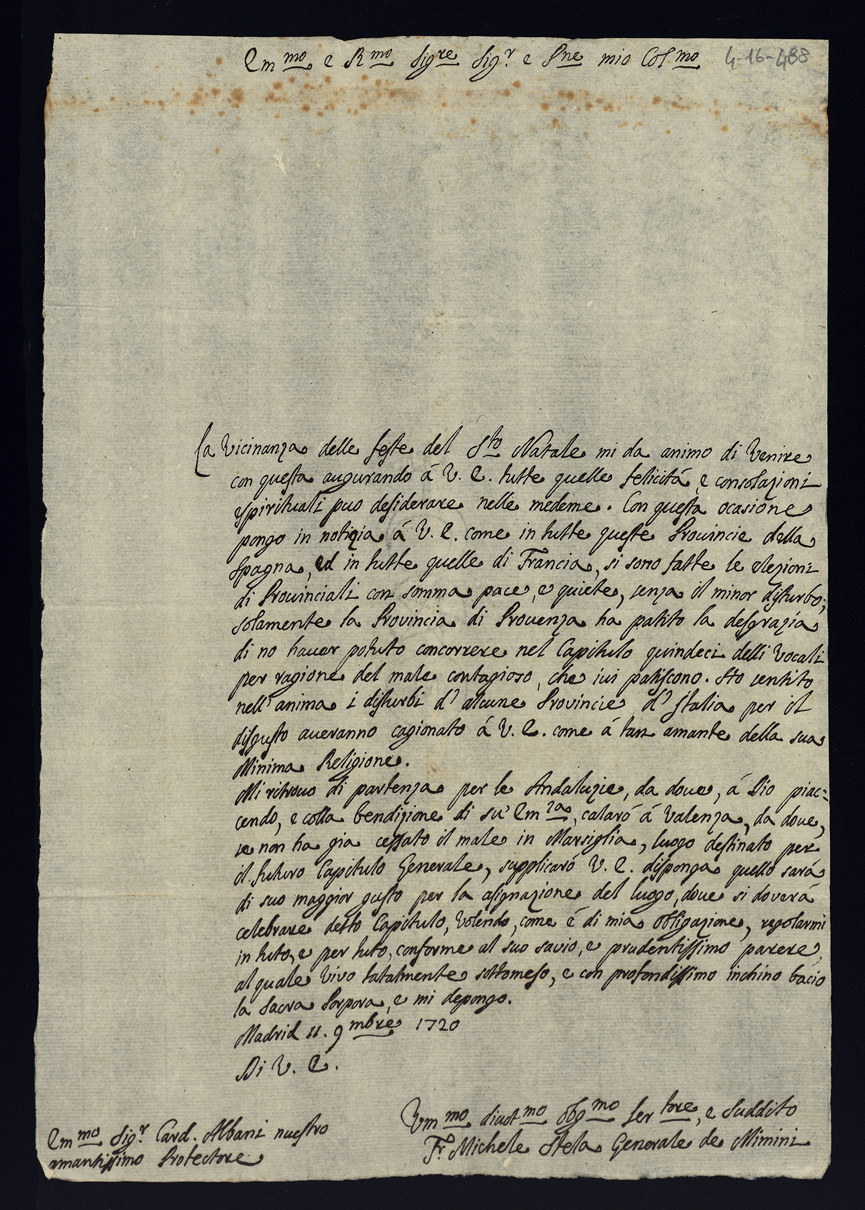 Em.mo e R.mo Sig.re Sig.r e Pne mio Col.mo 4-16-488
La Vicinanza delle feste del S.to Natale mi da animo di Venire
con questa augurando á V. E. tutte quelle felicitá e consolazioni
spirituali puo desiderare nelle medeme. Con questa ocasione
pongo in notizia á V. E. come in tutte queste Provincie della
Spagna, ed in tutte quelle di Francia, si sono fatte le elezioni
di Provinciali con somma pace, e quiete, senza il minor disturbo;
solamente la Provincia di Provenza ha patito la desgrazia
di no haver potuto concorrere nel Capitulo quindeci delli Vocali
per ragione del male contagioso, che ivi patiscono. Ho sentito
nell'anima i disturbi d'alcune Provincie d'Italia per il
disgusto averanno cagionato á V. E. come á tan amante della sua
Minima Religione.
Mi ritrovo di partenza per le Andaluzie, da dove, á Dio piac=
cendo, e colla bendizione di su' Em.za, calaró á Valenza, da dove,
se non ha gia cessato il male in Marsiglia, luogo destinato per
il futuro Capitulo Generale, supplicaró V. E. disponga quello sará
di suo maggior gusto per la asignazione del luogo, dove si doverá
celebrare detto Capitulo, Volendo, come é di mia obligazione, regolarmi
in tuto, e per tuto, conforme al suo savio, e prudentissimo parere,
al quale Vivo totalmente sottomeso, e con profondissimo inchino bacio
la Sacra Porpora, e mi depongo.
Madrid 11. 9mbre 1720
Di V. E.
Um.mo divot.mo obg.mo Ser.tore, e Suddito
Fr. Michele Stela Generale de Minimi
Em.mo Sig.r Card. Albani nuestro
amantissimo Protectore